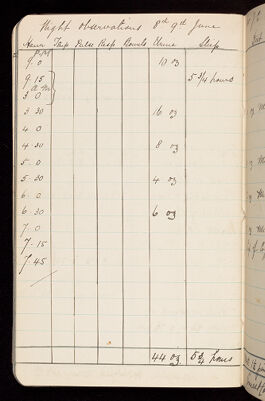 Night Observations 8th 9th June
Hour Temp Pulse Resp Bowels Urine Sleep
P.M
9. 0 10 oz
9. 15 5 3/4 hours
A.M
3. 0
3. 30 16 oz
4. 0
4. 30 8 oz
5. 0
5. 30 4 oz
6. 0
6. 30 6 oz
7. 0
7. 15
7. 45
44 oz 5 3/4 hours